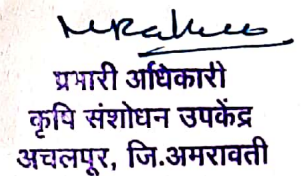 प्रभारी अधिकारी
कृषि संशोधन उपकेंद्र
अचलपूर, जि.अमरावती